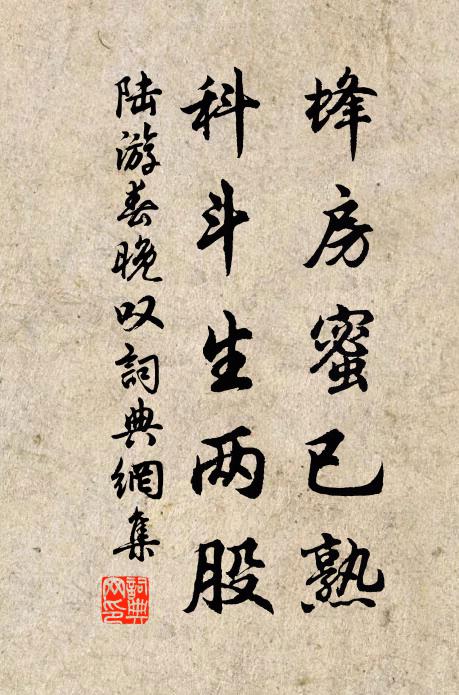 蜂房蜜已熟
科斗生两股
陆游春晚叹詞典網集
詞典网印